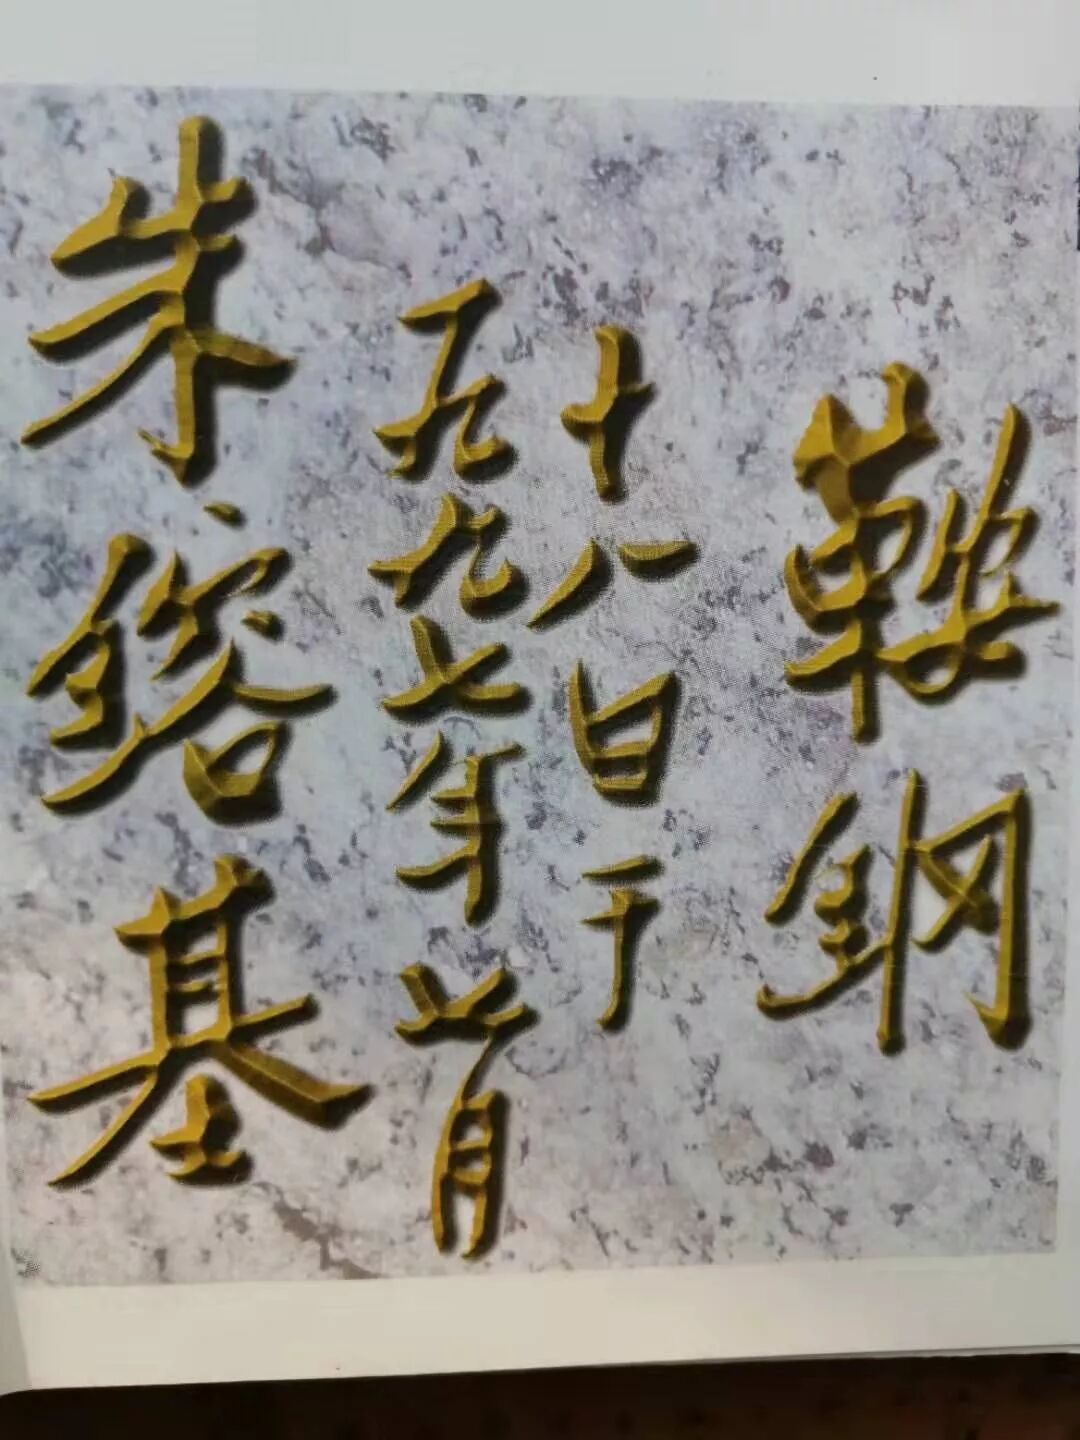 朱镕基
一九九七年七月
十八日于
鞍钢